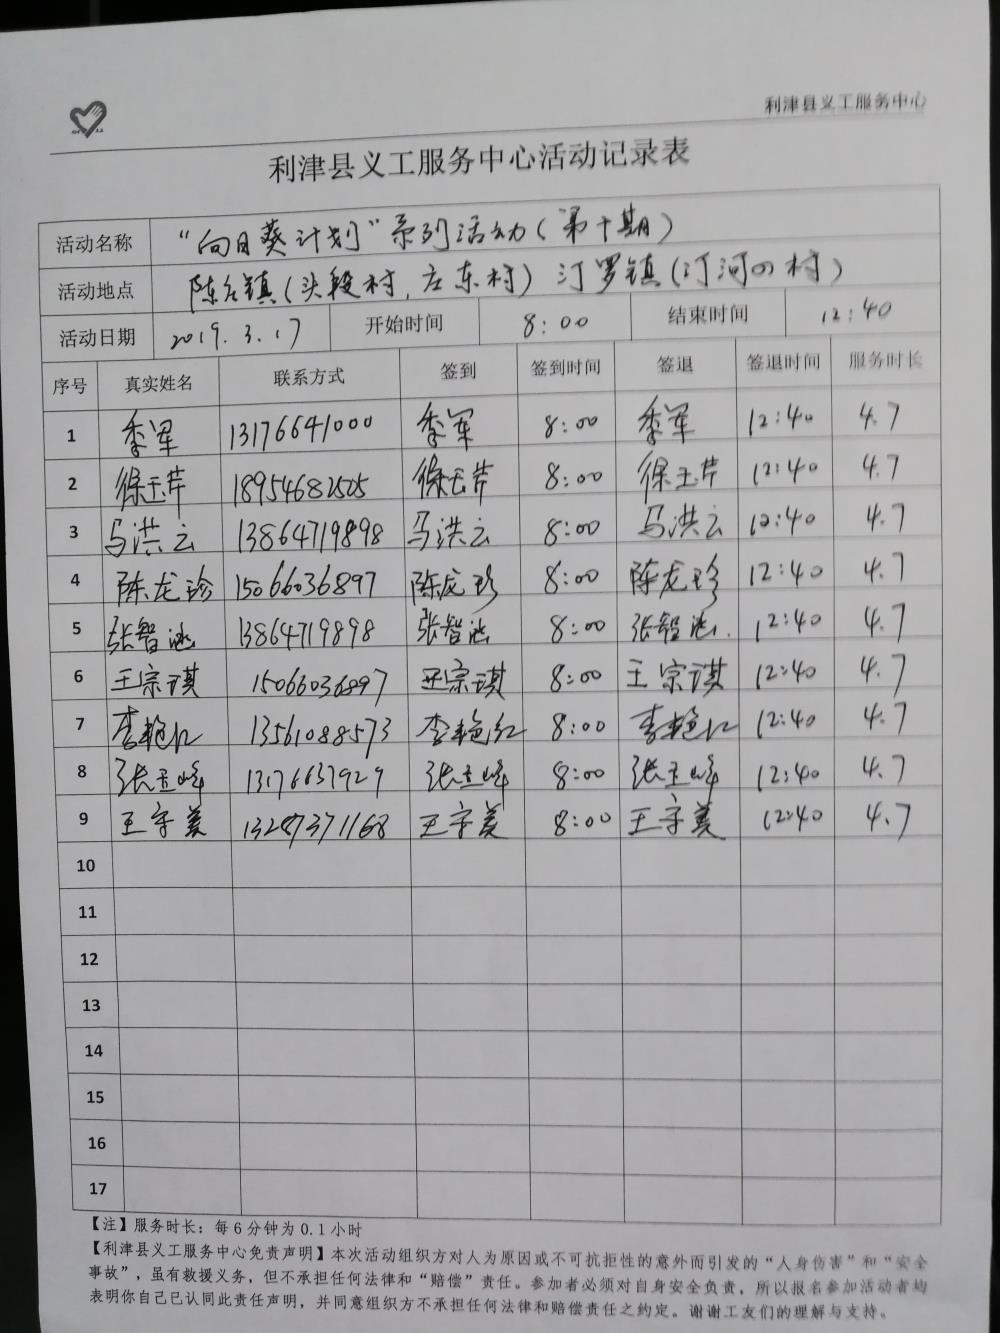 利津县义工服务中心
利津县义工服务中心活动记录表
活动名称 “向日葵计划”系列活动(第十期)
活动地点 陈庄镇(头段村,左东村) 汀罗镇(汀河四村)
活动日期 2019.3.17 开始时间 8:00 结束时间 12:40
序号 真实姓名 联系方式 签到 签到时间 签退 签退时间 服务时长
1 季军 13176641000 季军 8:00 季军 12:40 4.7
2 徐玉芹 18954682525 徐玉芹 8:00 徐玉芹 12:40 4.7
3 马洪云 13864719898 马洪云 8:00 马洪云 12:40 4.7
4 陈龙珍 15066036897 陈龙珍 8:00 陈龙珍 12:40 4.7
5 张智涵 13864719898 张智涵 8:00 张智涵 12:40 4.7
6 王宗琪 15066036897 王宗琪 8:00 王宗琪 12:40 4.7
7 李艳红 13561088573 李艳红 8:00 李艳红 12:40 4.7
8 张玉峰 13176637929 张玉峰 8:00 张玉峰 12:40 4.7
9 王守美 13287371168 王守美 8:00 王守美 12:40 4.7
10
11
12
13
14
15
16
17
【注】服务时长:每6分钟为0.1小时
【利津县义工服务中心免责声明】本次活动组织方对人为原因或不可抗拒性的意外而引发的“人身伤害”和“安全
事故”,虽有救援义务,但不承担任何法律和“赔偿”责任。参加者必须对自身安全负责,所以报名参加活动者均
表明你自己已认同此责任声明,并同意组织方不承担任何法律和赔偿责任之约定。谢谢工友们的理解与支持。